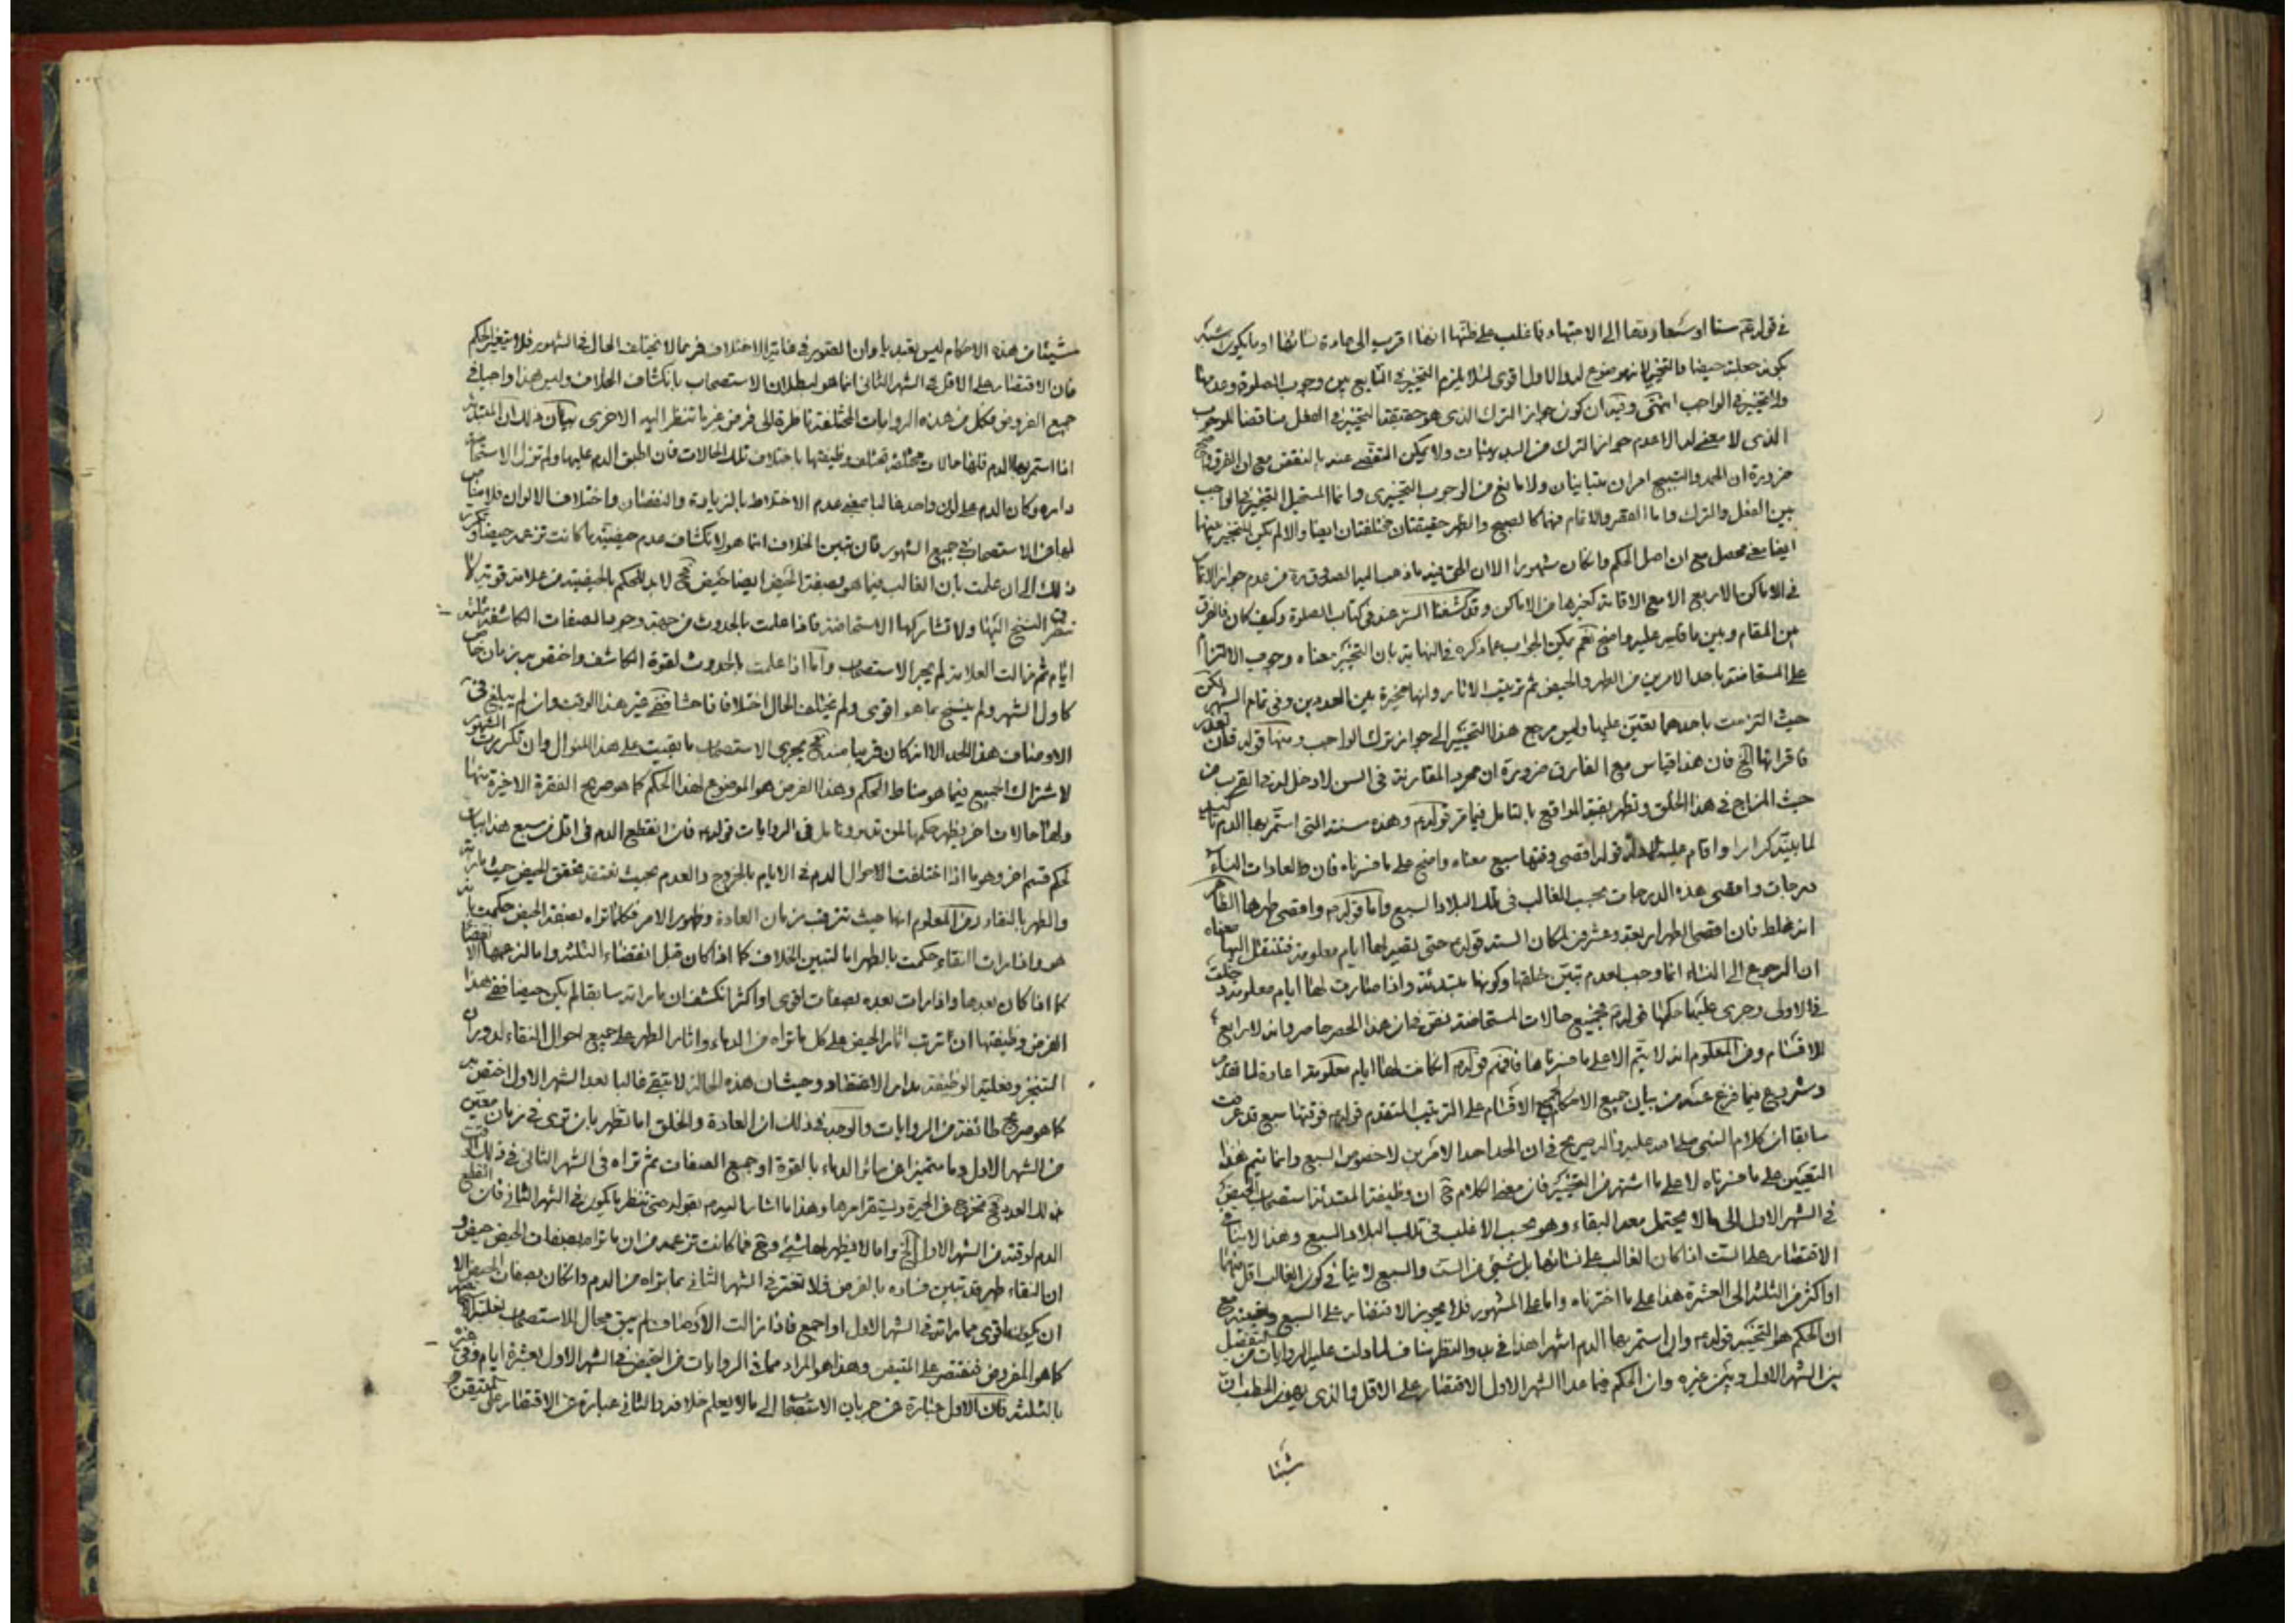 في قوله ستا او سبعا ردها الى الاجتهاد فما غلب على ظنها انها اقرب الى عادة نسائها او ما يكون اشبه
بكونه حيضا جعلته حيضا والتخيير
ولا تخيير في الواجب انتهى وفيه ان كون جواز الترك الذي هو حقيقة التخيير في الفعل مناقضا للوجوب
الذي لا معنى له الا عدم جواز الترك من البديهيات ولا يمكن التفصي عنه بالنقض مع ان الفرق
ضرورة ان الحمد والتسبيح امران متباينان ولا مانع من الوجوب التخييري وانما المستحيل التخيير في الواجب
بين الفعل والترك واما القصر والاتمام فهما كالصبح والظهر حقيقتان مختلفتان ايضا والا لم يكن للتخيير بينهما
ايضا معنى محصل مع ان اصل الحكم وان كان مشهورا الا ان الحق فيه ما ذهب اليه الصدوق قده من عدم جواز الاتمام
في الاماكن الاربع الا مع الاقامة كغيرها من الاماكن وقد كشفنا الستر عنه في كتاب الصلوة وكيف كان فالفرق
بين المقام وبين ما قيس عليه واضح نعم يمكن الجواب عما ذكره في النهاية بان التخيير معناه وجوب الالتزام
على المستحاضة باحد الامرين من الطهر والحيض ثم ترتيب الاثار وانها مخيرة بين العددين وفي تمام الشهر لكن
حيث التزمت باحدهما تعين عليها وليس مرجع هذا التخيير الى جواز ترك الواجب ومنها قوله فان
فاقرائها الخ فان هذا قياس مع الفارق ضرورة ان مجرد المقارنة في السن لا دخل له في القرب من
حيث المزاج في هذا الخلق وتظهر بقية المواقع بالتامل فيما مر قوله وهذه سنة التي استمر بها الدم
لما بينه تكرارا واقام عليه الادلة قوله اقصى وقتها سبع معناه واضح على ما فسرناه فان
درجات واقصى هذه الدرجات بحسب الغالب في تلك البلاد السبع واما قوله واقصى طهرها
انه غلط فان اقصى الطهر اربعة وعشرون لمكان الستة قوله حتى يصير لها ايام معلومة فتنتقل اليها معناه
ان الرجوع الى النساء انما وجب لعدم تبين خلقها وكونها مبتدئة واذا صارت لها ايام معلومة
في الاولى وجرى عليها حكمها قوله فجميع حالات المستحاضة نص في ان هذا الحصر حاصر وانه لا رابع
للاقسام ومن المعلوم انه لا يتم الا على ما فسرناها فافهم قوله ان كانت لها ايام معلومة اعادة لما
وشروع فيما فرغ عنه من بيان جميع الاحكام لجميع الاقسام على الترتيب المتقدم قوله فوقتها سبع قد عرفت
سابقا ان كلام النبي صلى الله عليه واله صريح في ان الحد احد الامرين لا خصوص السبع وانما يتم هذا
التعيين على ما فسرناه لا على ما اشتهر من التخيير فان معنى الكلام ح ان وظيفة المبتدئة استصحاب الحيض
في الشهر الاول الى ما لا يحتمل معه البقاء وهو بحسب الاغلب في تلك البلاد السبع وهذا لا ينافي
الاقتصار على الست اذا كان الغالب على نسائها بل شيئ من الست والسبع لا ينافي كون الغالب اقل منها
او اكثر من الثلثة الى العشرة هذا على ما اخترناه واما على المشهور فلا يجوز الاقتصار على السبع وتعينه مع
ان الحكم هو التخيير قوله وان استمر بها الدم اشهرا هذا في بدو النظر ينافي لما دلت عليه الروايات من التفصيل
بين الشهر الاول وبين غيره وان الحكم فيما عدا الشهر الاول الاقتصار على الاقل والذي يهون الخطب ان
شيئا
شيئا من هذه الاحكام ليس تعبديا وان الصور في غاية الاختلاف فربما لا يختلف الحال في الشهور فلا يتغير الحكم
فان الاقتصار على الاقل في الشهر الثاني انما هو لبطلان الاستصحاب بانكشاف الخلاف وليس هذا واجبا في
جميع الفروض فكل من هذه الروايات المختلفة ناظرة الى فرض غير ما تنظر اليه الاخرى بيان ذلك ان المبتدئة
اذا استمر بها الدم فلها حالات مختلفة تختلف وظيفتها باختلاف تلك الحالات فان اطبق الدم عليها ولم تزل الاستحاضة
دارة وكان الدم على لون واحد غالبا بمعنى عدم الاختلاط بالزيادة والنقصان واختلاف الالوان فلا مناص
لها من الاستصحاب في جميع الشهور فان تبين الخلاف انما هو لانكشاف عدم حيضية ما كانت تزعمه حيضا
ذلك الى ان علمت بان الغالب فيما هو بصفة الحيض ايضا حيض فح لا بد للحكم بالحيضية من علامة قوية لا
النسخ اليها ولا تشاركها الاستحاضة فاذا علمت بالحدوث من جهة وجود الصفات الكاشفة ثلثة
ايام ثم زالت العلامة لم يجر الاستصحاب واما اذا علمت بالحدوث لقوة الكاشف واختص بزمان خاص
كاول الشهر ولم ينسخ بما هو اقوى ولم يختلف الحال اختلافا فاحشا ففي غير هذا الوقت وان لم يبلغ في
الاوصاف هذا الحد الا انه كان قريبا منه فح يجري الاستصحاب ما بقيت على هذا المنوال وان تكررت الشهور
لاشتراك الجميع فيما هو مناط الحكم وهذا الفرض هو الموضوع لهذا الحكم كما هو صريح الفقرة الاخيرة منها
ولها حالات اخر يظهر حكمها لمن تدبر وتامل في الروايات قوله فان انقطع الدم في اقل من سبع هذا بيان
لحكم قسم اخر وهو ما اذا اختلفت الاحوال الدم في الايام بالخروج والعدم بحيث تعتقد بتحقق الحيض حيث ما راته
والطهر بالنقاء ومن المعلوم انها حيث تترقب زمان العادة وظهور الامر فكلما تراه بصفة الحيض حكمت بانه
هو واذا رات النقاء حكمت بالطهر اما لتبين الخلاف كما اذا كان قبل انقضاء الثلثة واما
كما اذا كان بعدها واذا رات بعده بصفات اقوى او اكثر انكشف ان ما راته سابقا لم يكن حيضا ففي هذا
الفرض وظيفتها ان ترتب اثار الحيض على كل ما تراه من الدماء واثار الطهر على جميع احوال النقاء لدوران
التنجز وفعلية الوظيفة مدار الاعتقاد وحيث ان هذه الحالة لا تبقى غالبا بعد الشهر الاول اختص به
كما هو صريح طائفة من الروايات والوجه في ذلك ان العادة والخلق اما تظهر بان ترى في زمان معين
من الشهر الاول دما متميزا عن سائر الدماء بالقوة او جميع الصفات ثم تراه في الشهر الثاني في ذلك الوقت
ذلك العدد فح تخرج من الحيرة ويستقر امرها وهذا ما اشار اليه بقوله حتى تنظر ما يكون في الشهر الثاني فان انقطع
الدم لوقته من الشهر الاول الخ واما لا يظهر لها شيئ وح فما كانت تزعمه من ان ما تراه بصفات الحيض حيض و
ان النقاء طهر قد تبين فساده بالفرض فلا تغتر في الشهر الثاني بما تراه من الدم وان كان بصفات الحيض الا
ان يكون اقوى مما راته في الشهر الاول او اجمع فاذا زالت الاوصاف لم يبق مجال للاستصحاب
كما هو المفروض فتقتصر على المتيقن وهذا هو المراد مما في الروايات من التحيض في الشهر الاول بعشرة ايام وفي غيره
بالثلثة فان الاول عبارة عن جريان الاستصحاب الى ما لا يعلم خلافه والثاني عبارة عن الاقتصار على المتيقن و